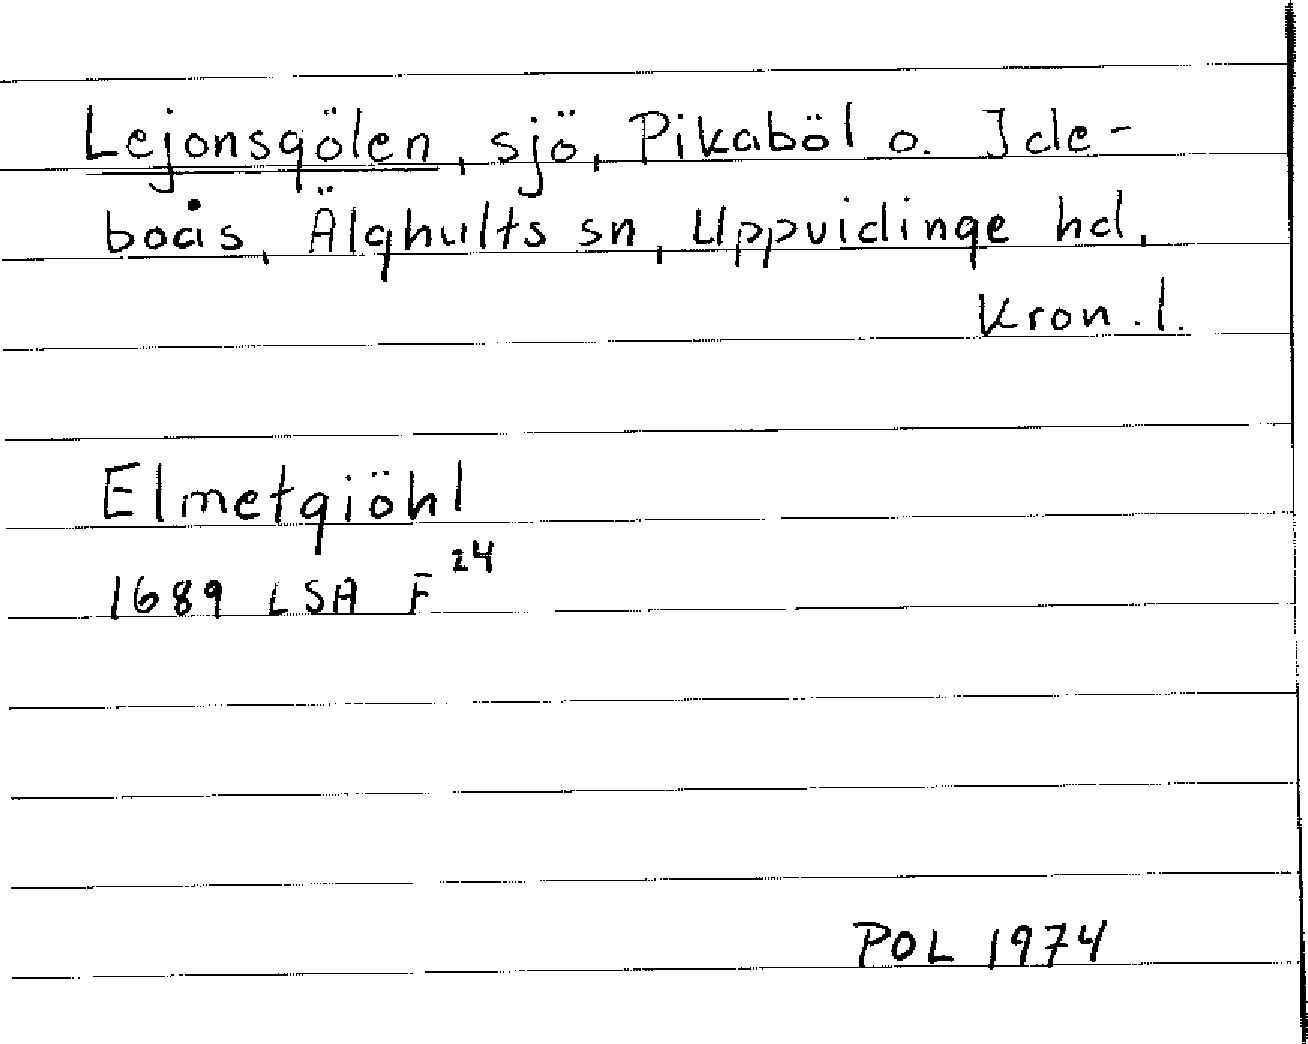 Lejonsgölen, sjö, Pikaböl o. Ide-
boås, Älghults sn, Uppvidinge hd,
Kron.l.
Elmetgiöhl
1689 LSA F 24
POL 1974